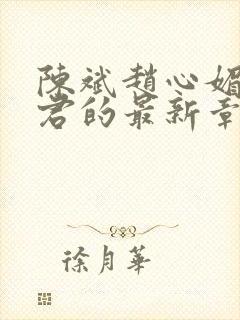 陳斌趙心媚
君的最新章
徐月華